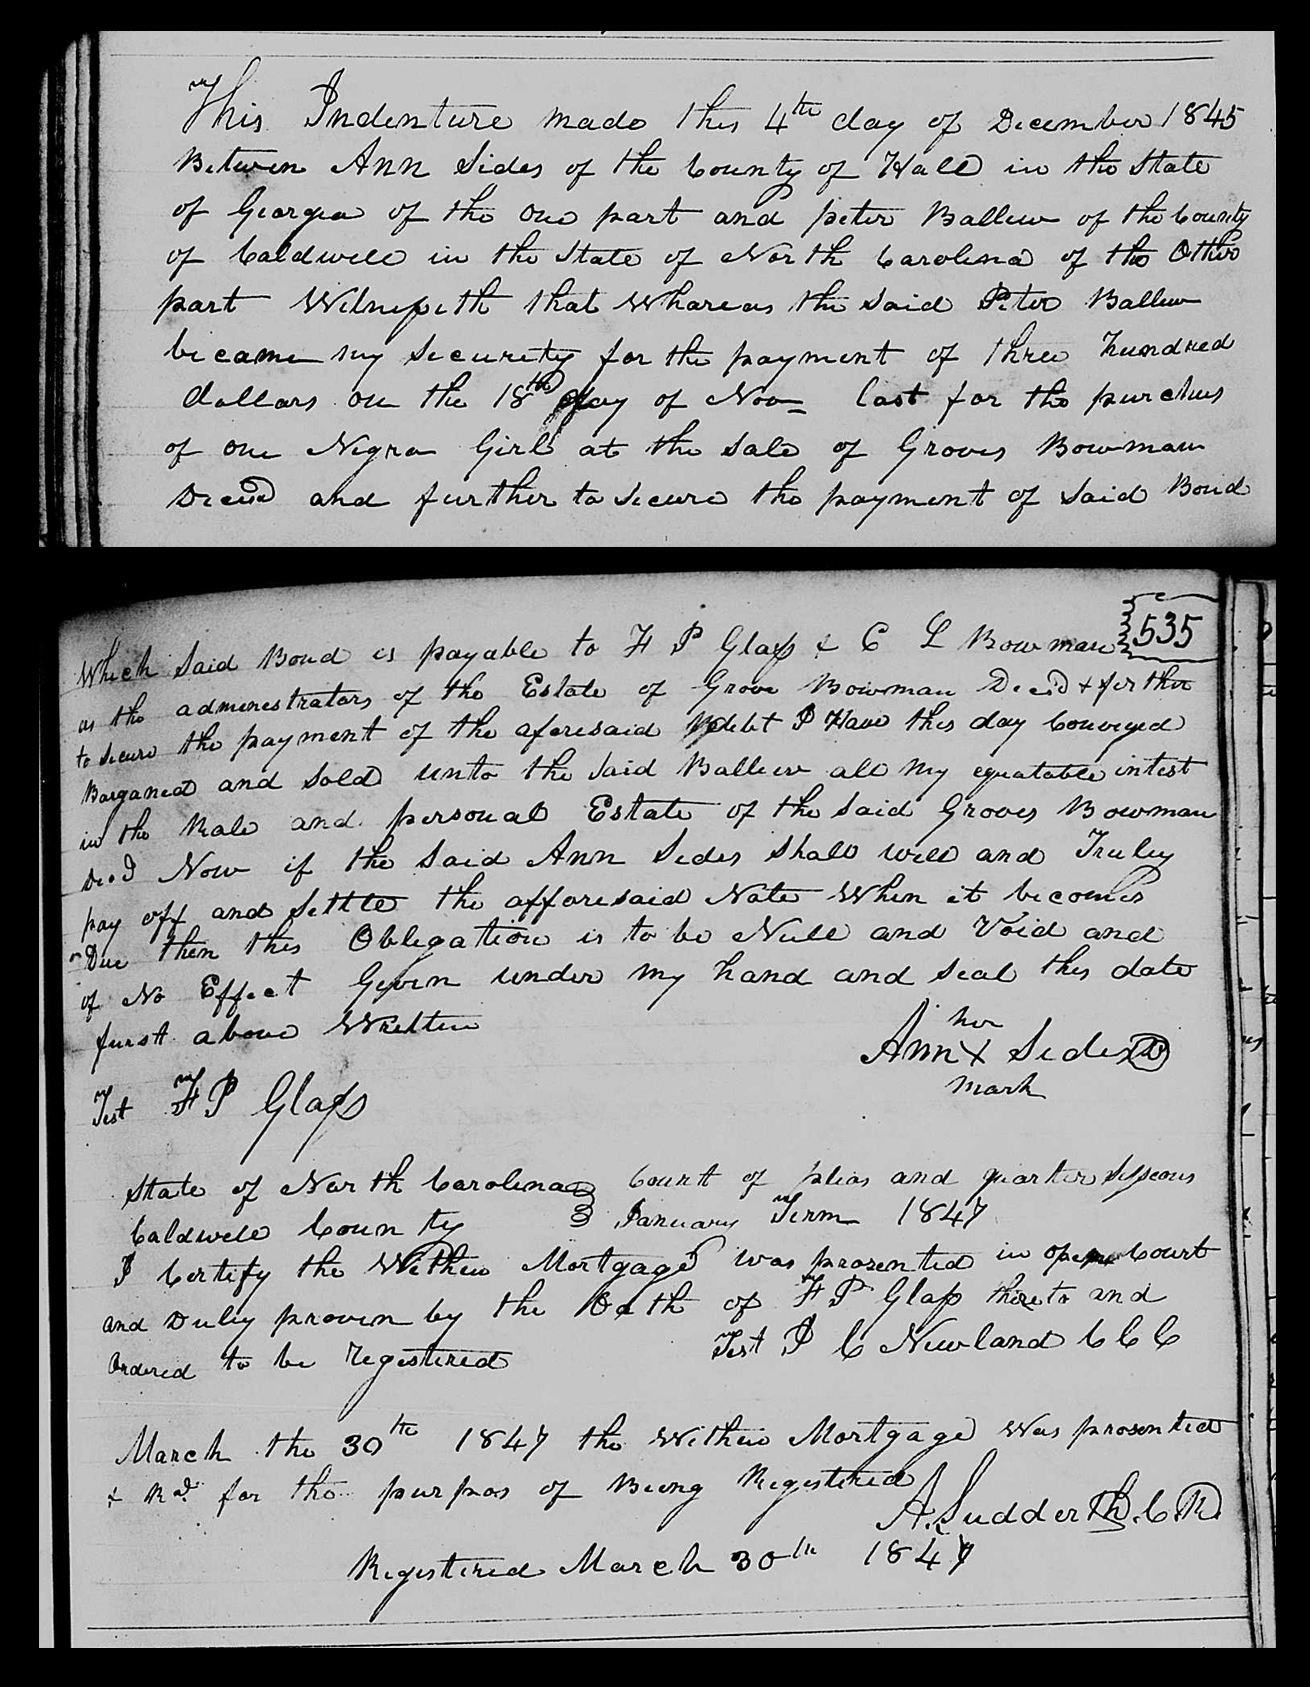 This Indenture made this 4th day of December 1845
Between Ann Sides of the County of Hall in the State
of Georgia of the one part and peter Ballew of the County
of Caldwell in the State of North Carolina of the Other
part Witnesseth that Whareas the said Peter Ballew
became my security for the payment of three hundred
dollars on the 18th day of Nov last for the purchus
of one Negra Girl at the sale of Groves Bowman
Decesd and further to secure the payment of said Bond
535
Which said Bond is payable to F P Glass & C L Bowman
as the admenestrators of the Estate of Grove Bowman Decd & ferther
to secure the payment of the aforesaid debt I Have this day Conveyed
Barganed and sold unto the said Ballew all my equatable intest
in the Rale and personal Estate of the said Groves Bowman
Decd Now if the said Ann Sides shall well and Truley
pay off and settle the afforesaid Note When it becomes
Due then this Obligation is to be Null and Void and
of No Effect Given under my hand and seal this date
furst above Written
her
Ann X Sides
mark
Test F P Glass
State of North Carolina Court of pleas and quarter sessions
Caldwell County January Term 1847
I Certify the Within Mortgage was prosented in open Court
and Duley proven by the Oath of F P Glass thereto and
Ordered to be registered Test P C Newland C C C
March the 30th 1847 the Within Mortgage Was prosented
& Rd for the purpos of Being Registered
A. Sudderth. C. R.
Registered March 30th 1847